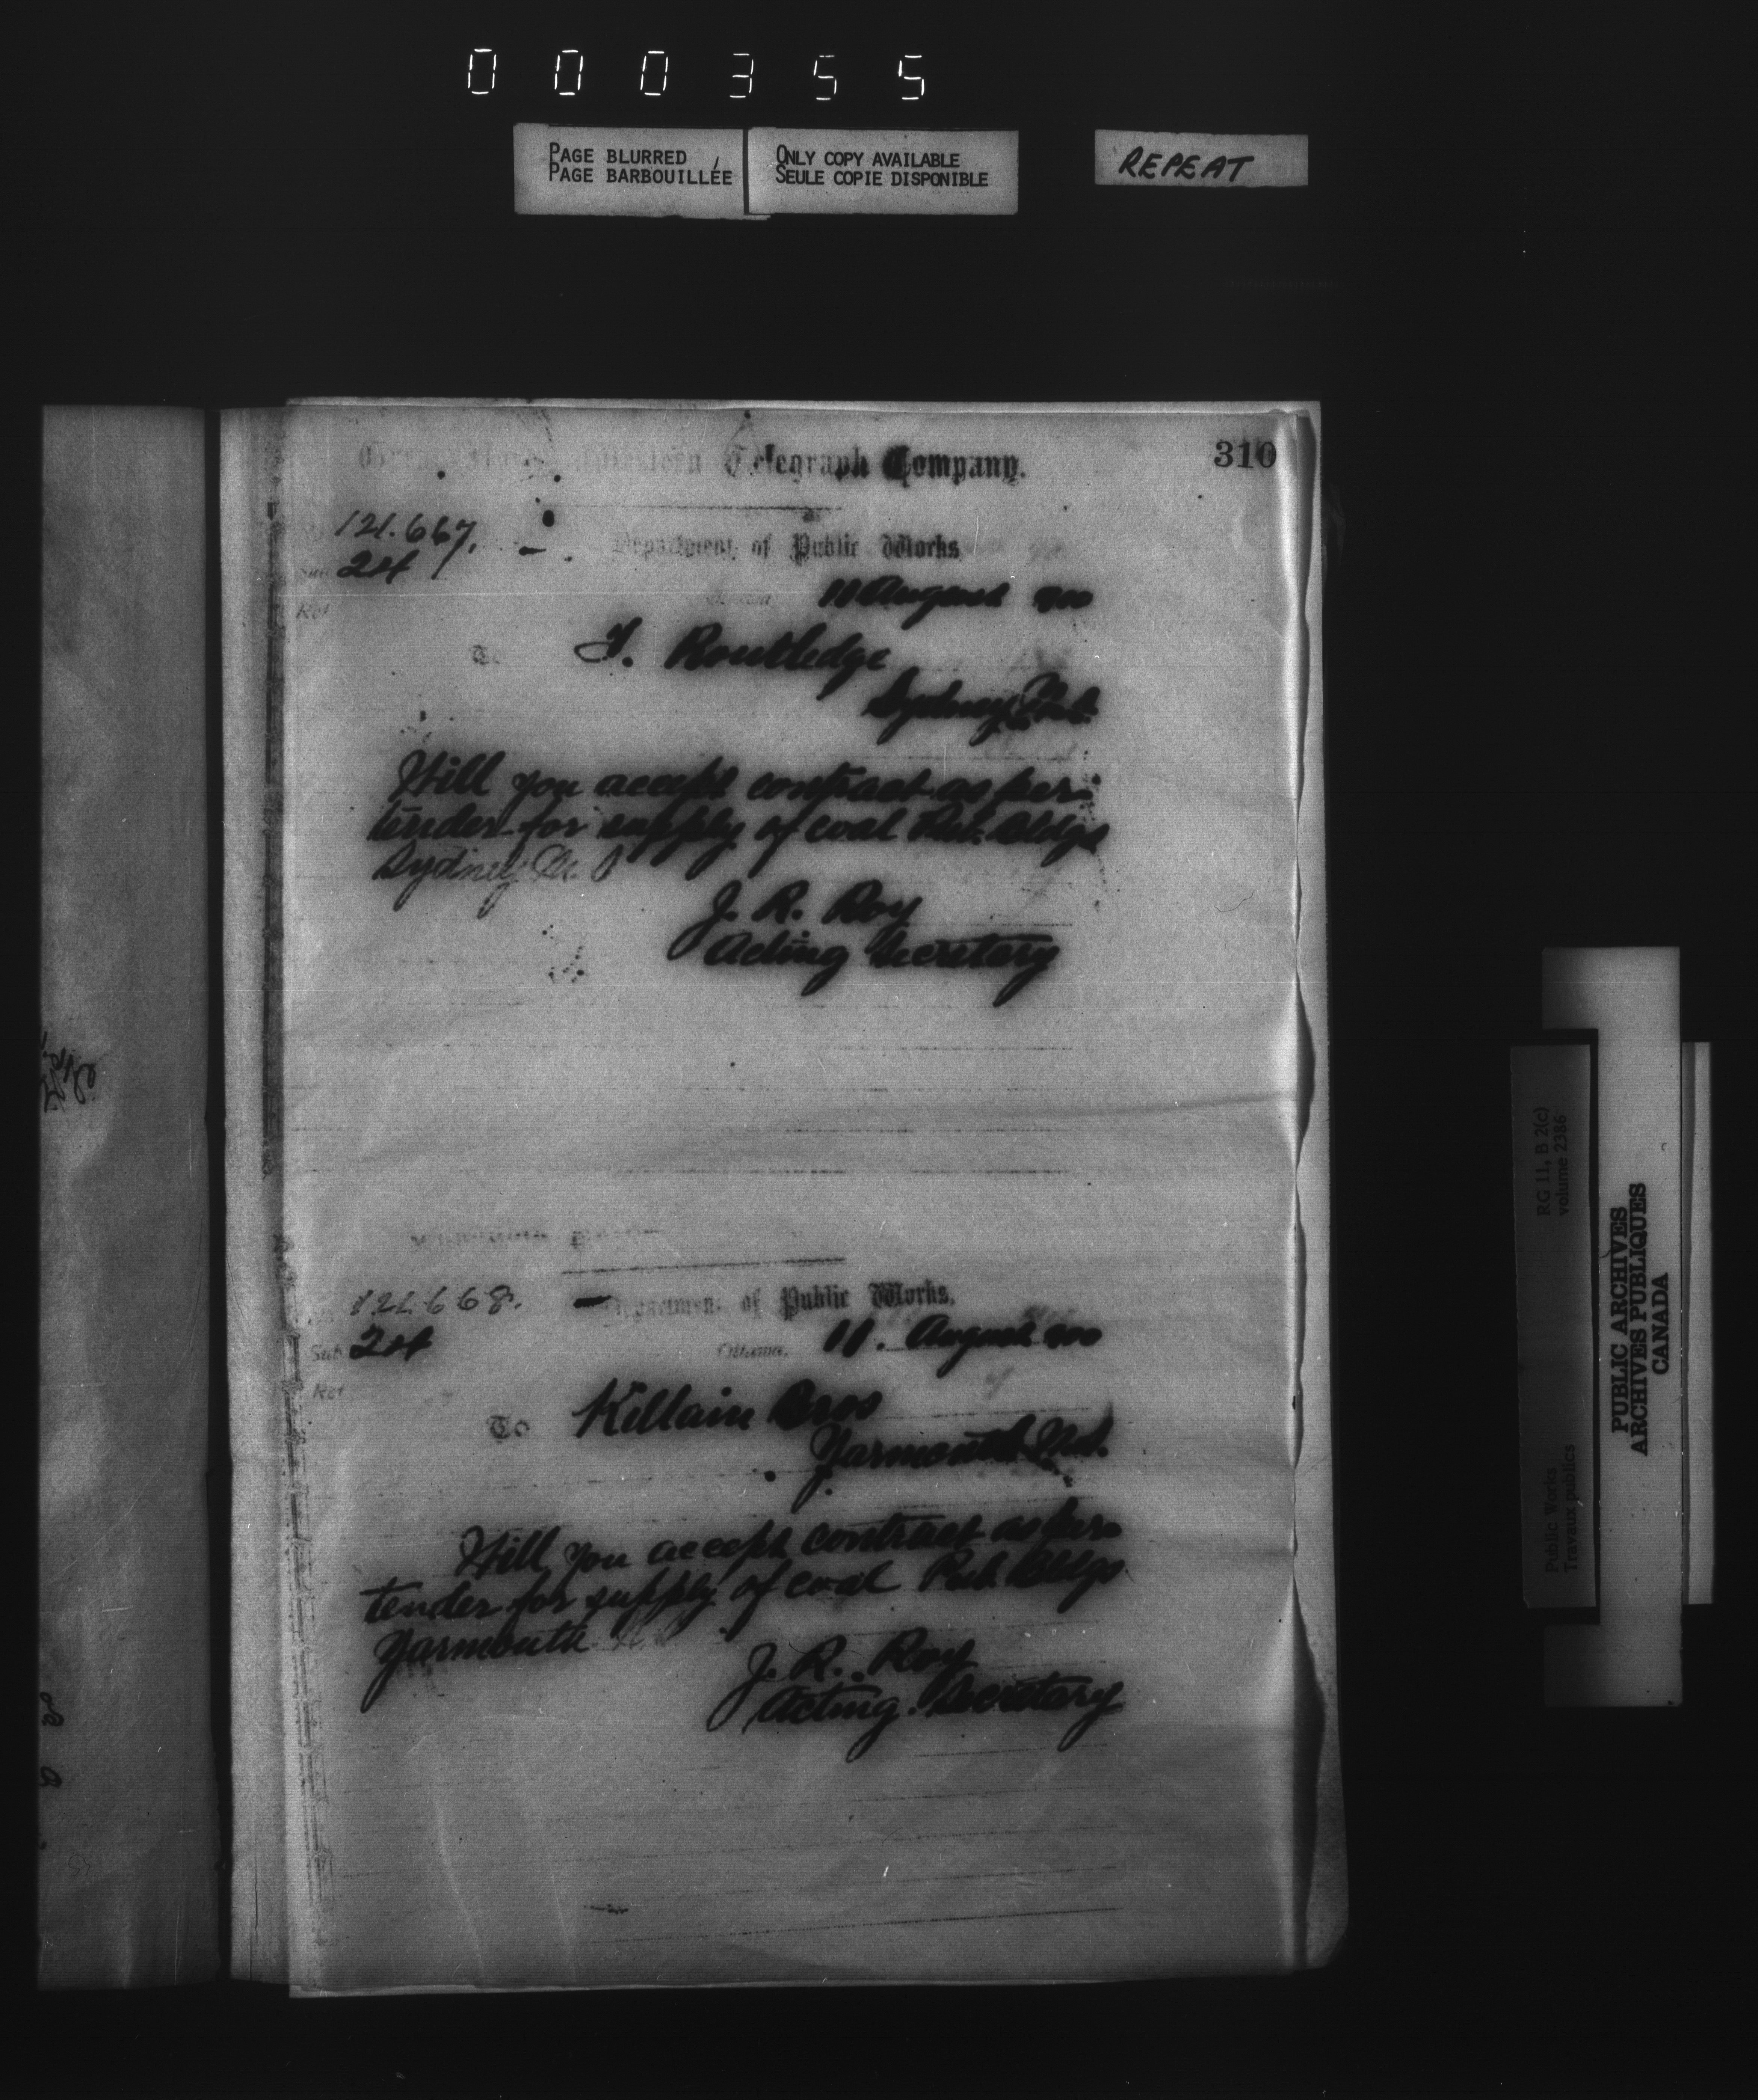 000355
PAGE BLURRED
PAGE BARBOUILLÉE
ONLY COPY AVAILABLE
SEULE COPIE DISPONIBLE
REPEAT
310
Western Telegraph Company.
121.667.
Sub 24
Ref
Department of Public Works
Ottawa 11 August 900
To J. Routledge
Sydney
Will you accept contract as per
tender for supply of coal Pub. Bldgs
Sydney
J. R. Roy
Acting Secretary
121668.
Department of Public Works.
Sub 24
Ottawa. 11. August 900
Ref
To Killain Bros
Yarmouth
Will you accept contract as per
tender for supply of coal Pub. Bldgs
Yarmouth
J. R. Roy
Acting Secretary
RG 11, B 2(c)
volume 2386
Public Works
Travaux publics
PUBLIC ARCHIVES
ARCHIVES PUBLIQUES
CANADA